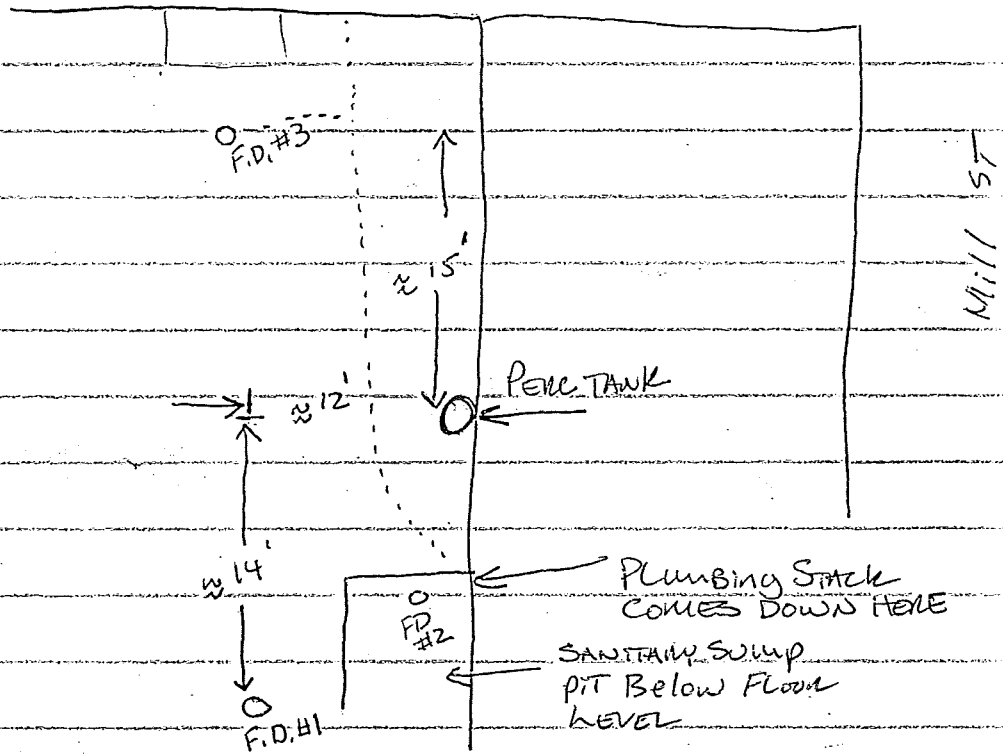 F.D. #3
≈ 15'
Mill ST
≈ 12'
PERC TANK
≈ 14'
FD
#2
PLUMBING STACK
COMES DOWN HERE
SANITARY SUMP
PIT BELOW FLOOR
LEVEL
F.D. #1